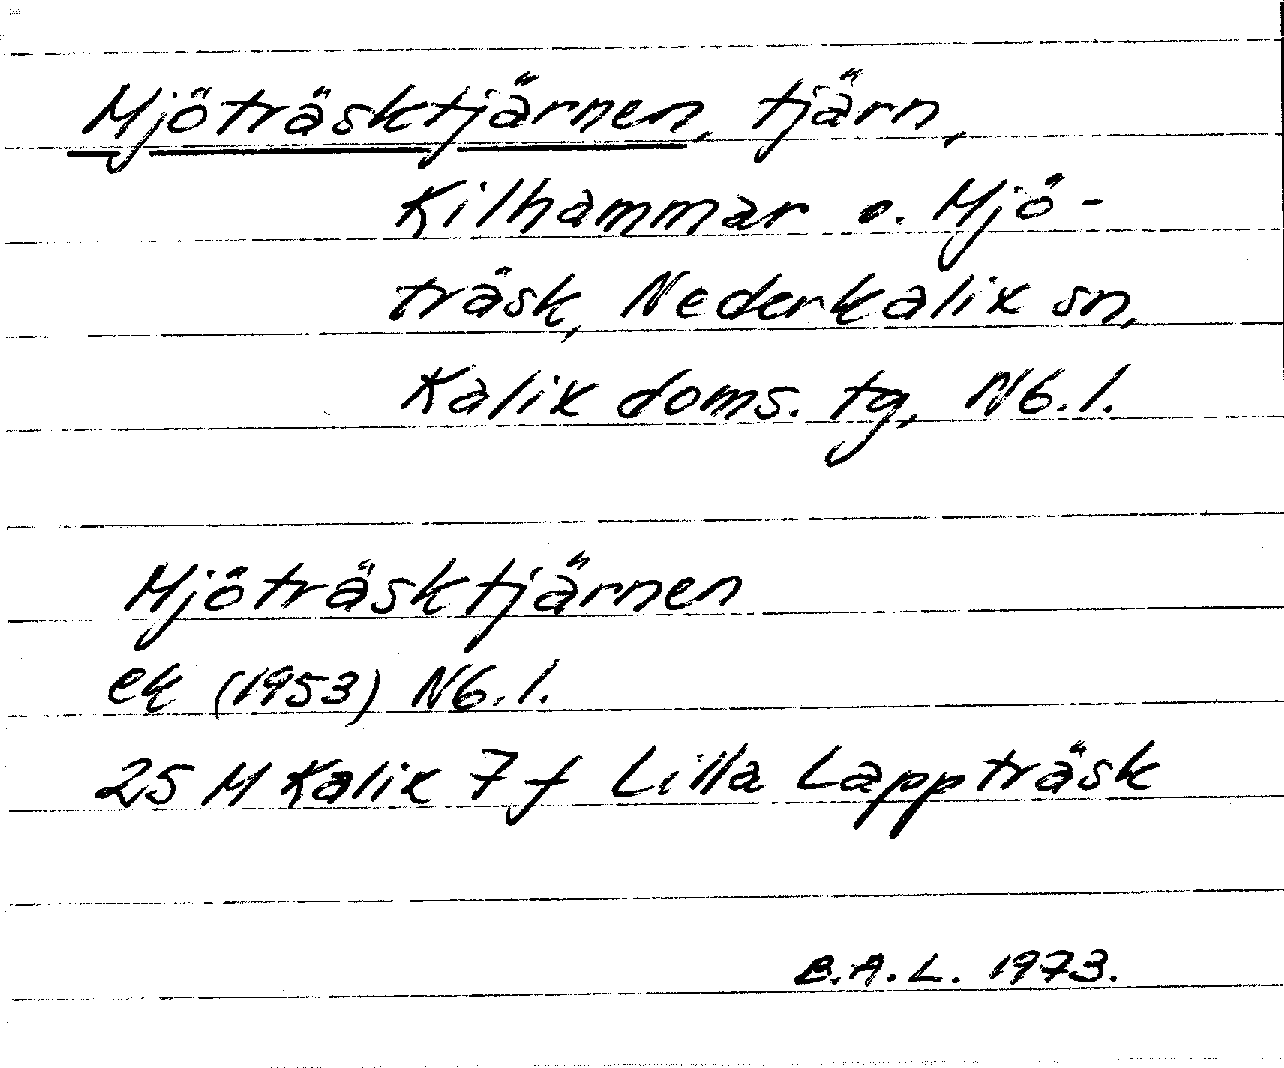 Mjöträsktjärnen, tjärn,
Kilhammar o. Mjö-
träsk, Nederkalix sn,
Kalix doms. tg, Nb. l.
Mjöträsktjärnen
ek (1953) Nb. l.
25 M Kalix 7 f Lilla Lappträsk
B.A.L. 1973.